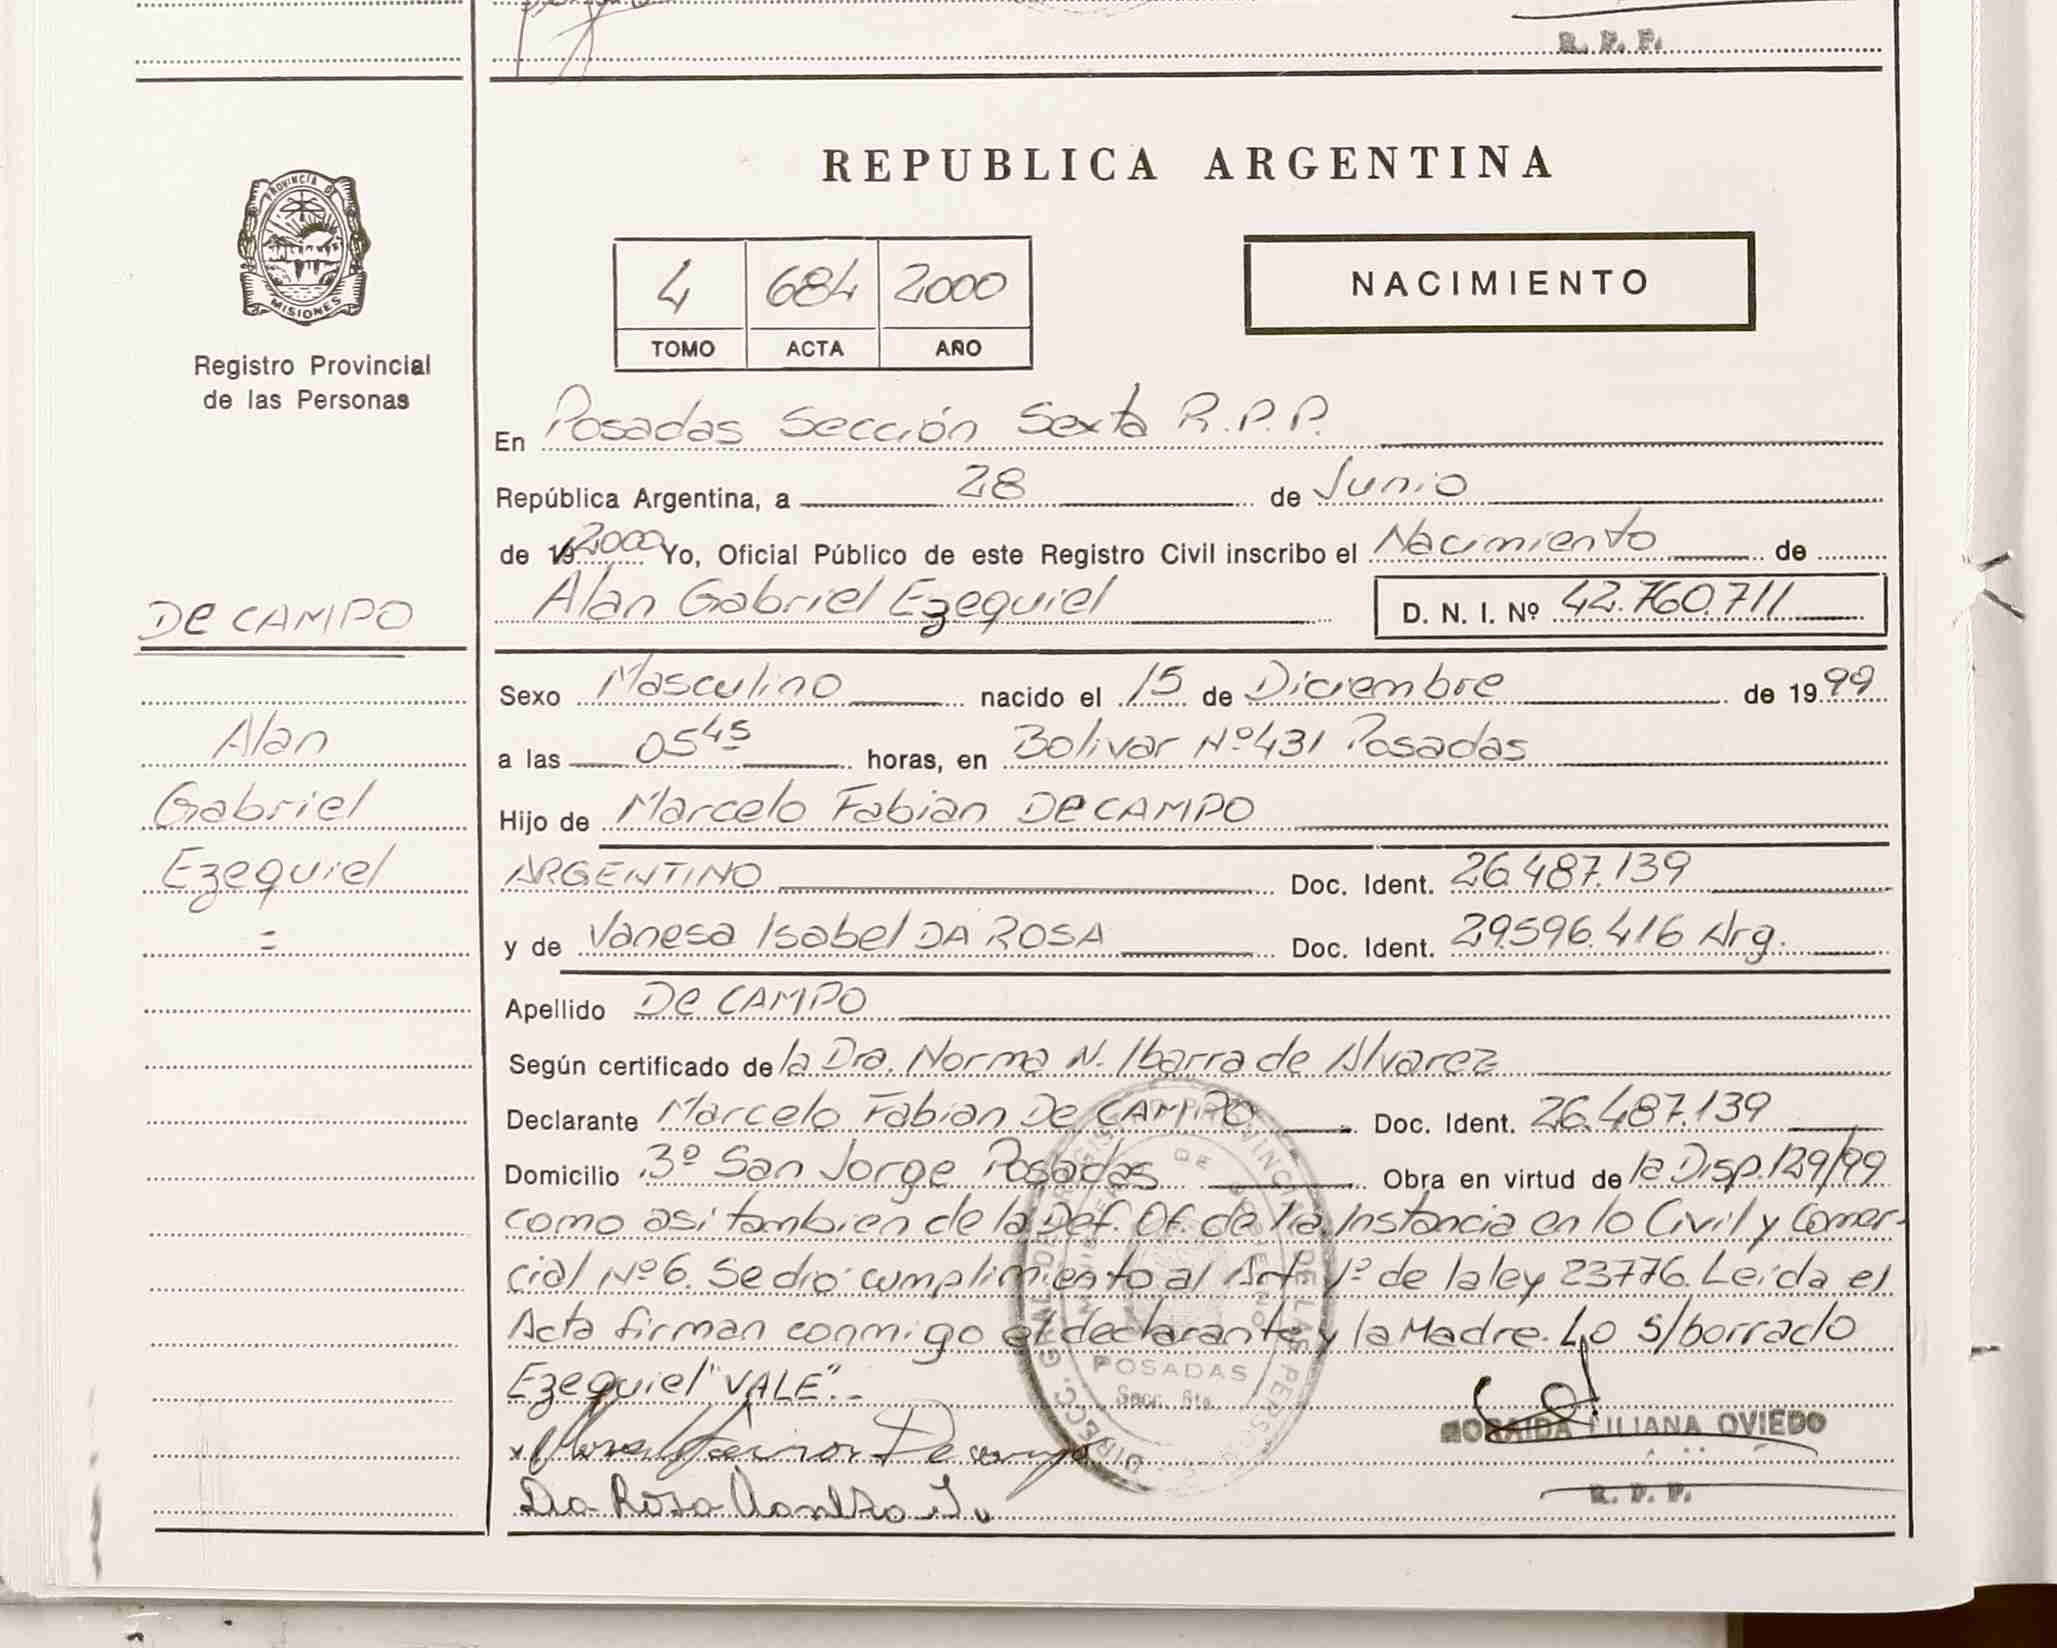 R. P. P.
REPUBLICA ARGENTINA
PROVINCIA DE
MISIONES
Registro Provincial
de las Personas
4 684 2000
TOMO ACTA AÑO
NACIMIENTO
En Posadas Sección Sexta R.P.P.
República Argentina, a 28 de Junio
de 19 2000 Yo, Oficial Público de este Registro Civil inscribo el Nacimiento de
Alan Gabriel Ezequiel D. N. I. Nº 42.760.711
DE CAMPO
Alan
Gabriel
Ezequiel
=
Sexo Masculino nacido el 15 de Diciembre de 1999
a las 05 45 horas, en Bolivar Nº 431 Posadas
Hijo de Marcelo Fabian DE CAMPO
ARGENTINO Doc. Ident. 26.487.139
y de Vanesa Isabel DA ROSA Doc. Ident. 29.596.416 Arg.
Apellido DE CAMPO
Según certificado de la Dra. Norma N. Ibarra de Alvarez
Declarante Marcelo Fabian De CAMPO Doc. Ident. 26.487.139
Domicilio 3º San Jorge Posadas Obra en virtud de la Disp. 129/99
como asi tambien de la Def. Of. de 1ra. Instancia en lo Civil y Comer-
cial Nº 6. Se dió cumplimiento al Art. 1º de la ley 23776. Leída el
Acta firman conmigo el declarante y la Madre. Lo s/borrado
Ezequiel "VALE".-
DIRECC. GRAL DE REGISTRO PROVINCIAL DE LAS PERSONAS
MINISTERIO DE GOBIERNO
POSADAS
Secc. 6ta.
MORAIDA LILIANA OVIEDO
R. P. P.